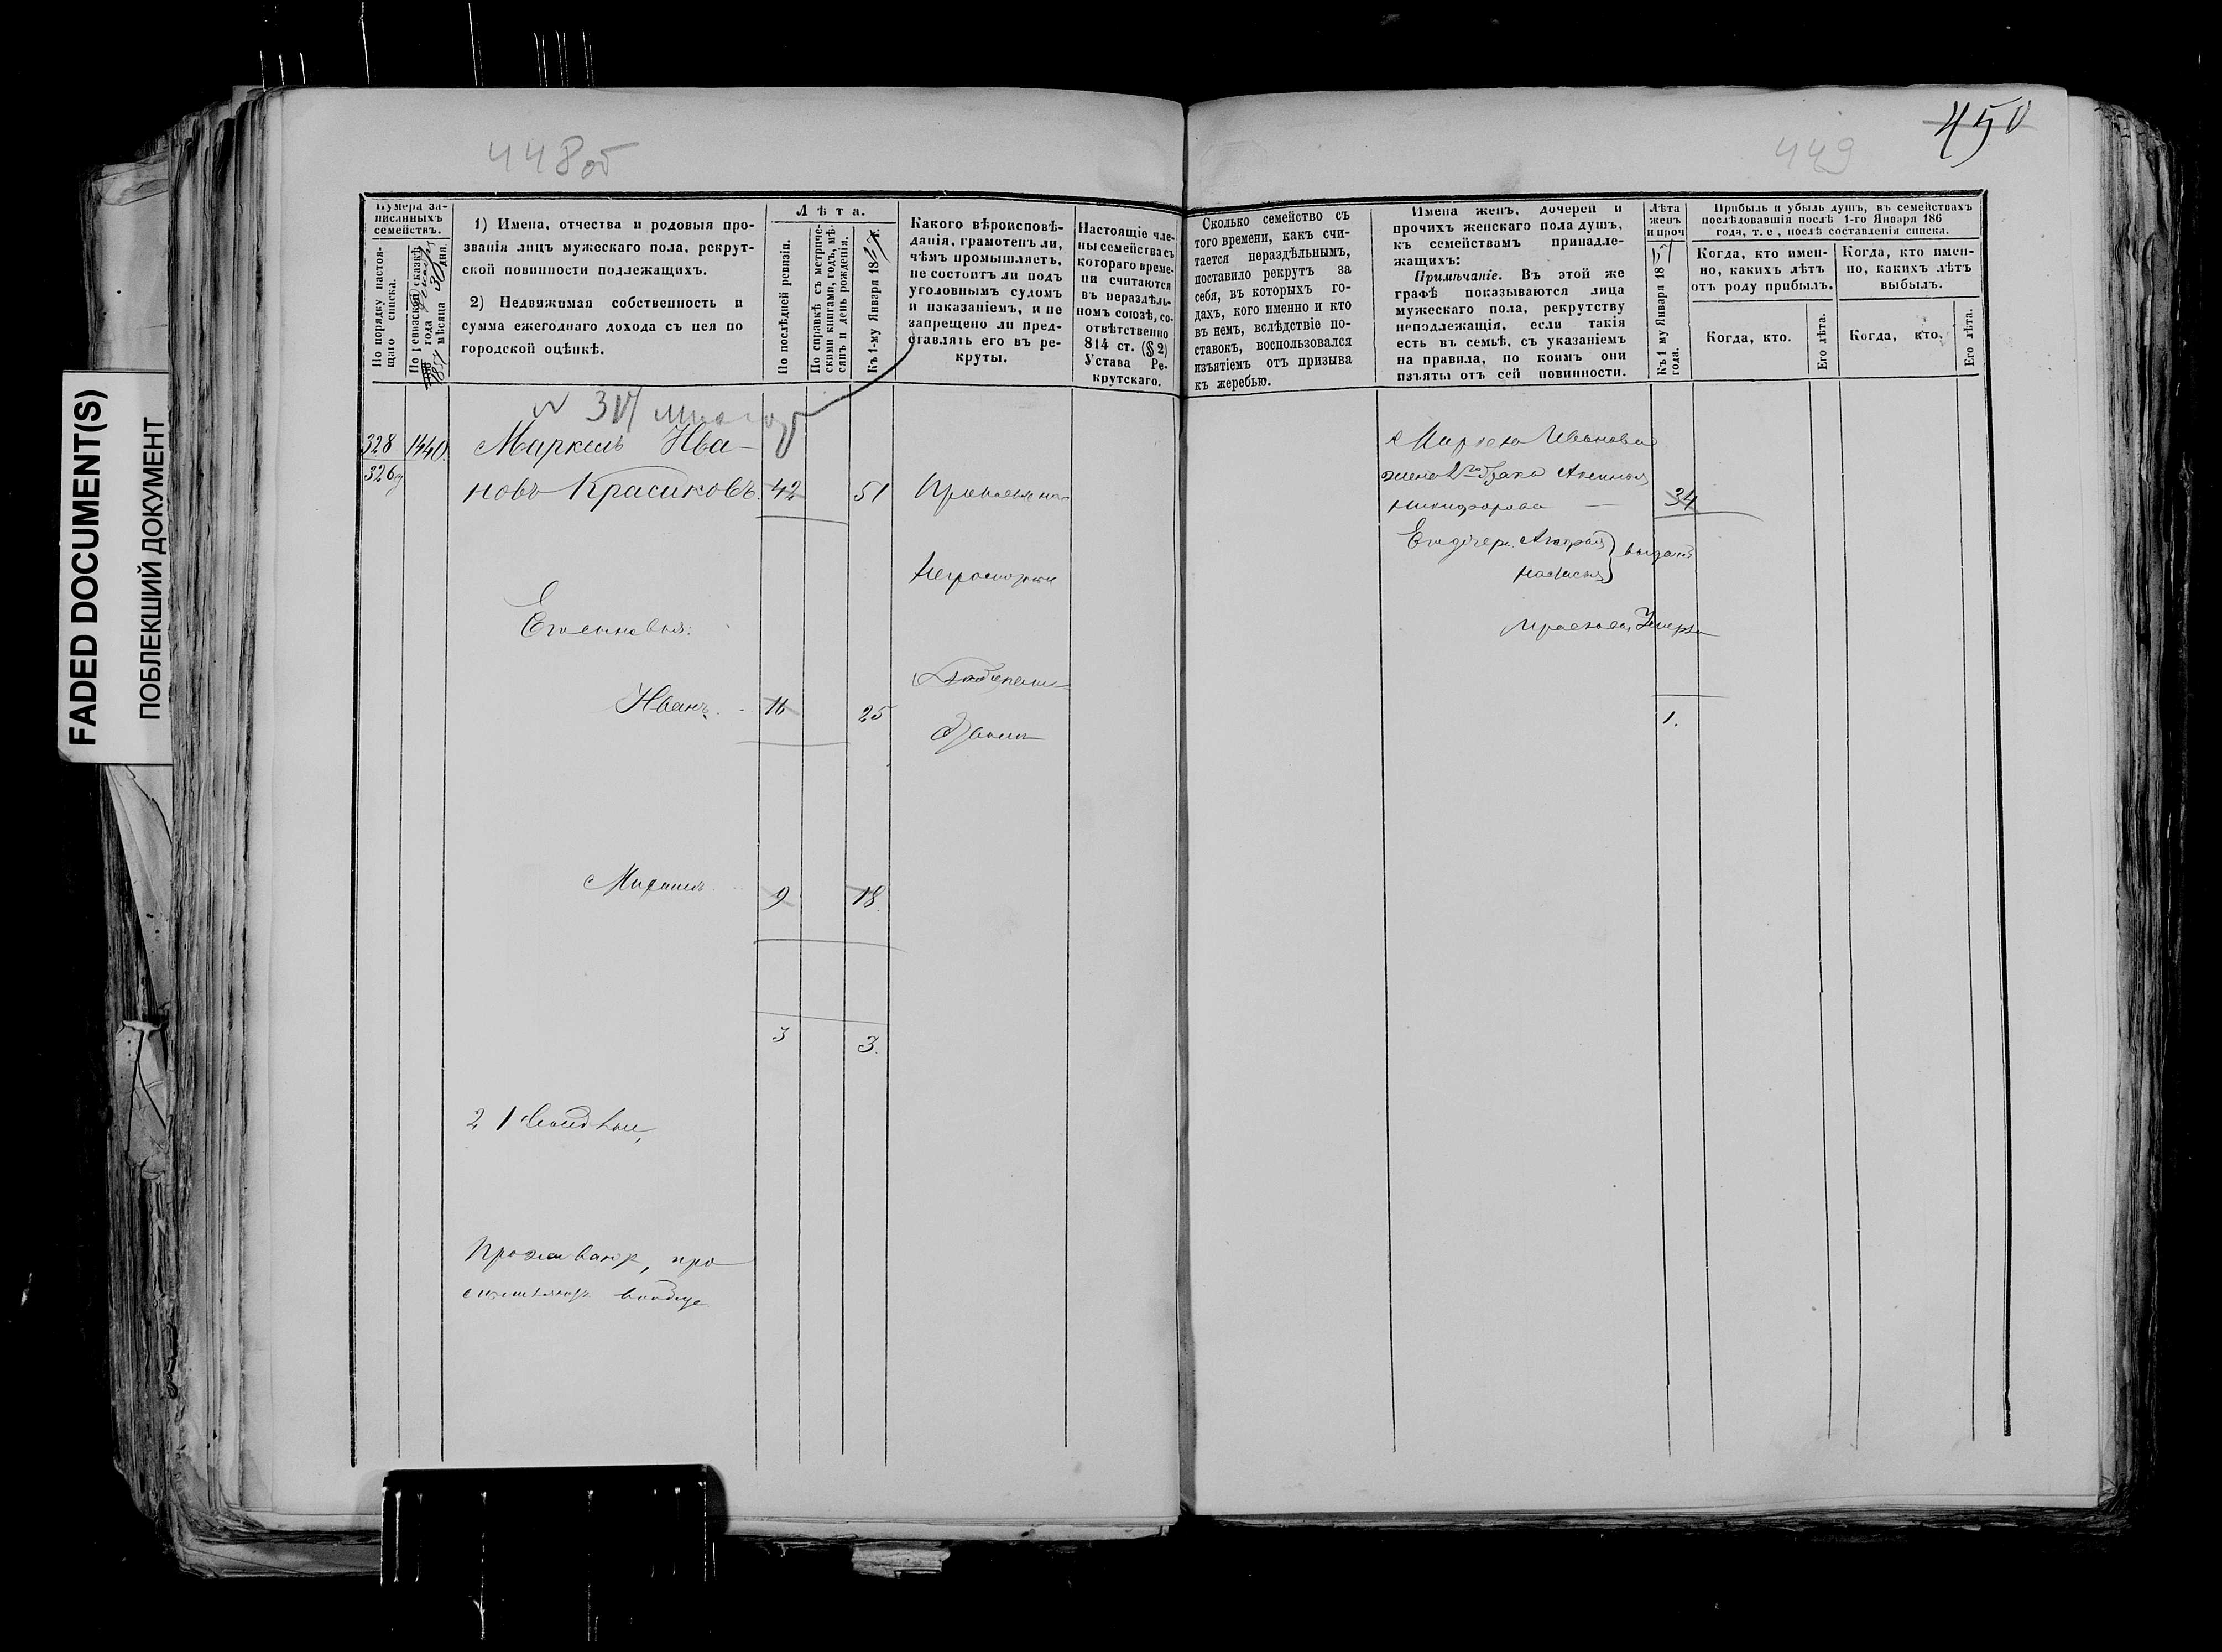 FADED DOCUMENT(S)
ПОБЛЕКШИЙ ДОКУМЕНТ
448об
Нумера за-
писанныхъ
семействъ.
По порядку настоя-
щаго списка.
По ревизской сказкѣ
года
мѣсяца 30 дня.
1) Имена, отчества и родовыя про-
званія лицъ мужескаго пола, рекрут-
ской повинности подлежащихъ.
2) Недвижимая собственность и
сумма ежегоднаго дохода съ нея по
городской оцѣнкѣ.
Лѣта.
По послѣдней ревизіи.
По справкѣ съ метриче-
скими книгами, годъ, мѣ-
сяцъ и день рожденія.
Къ 1-му Января 18 г.
Какого вѣроисповѣ-
данія, грамотенъ ли,
чѣмъ промышляетъ,
не состоитъ ли подъ
уголовнымъ судомъ
и наказаніемъ, и не
запрещено ли пред-
ставлять его въ ре-
круты.
Настоящіе чле-
ны семейства съ
котораго време-
ни считаются
въ нераздѣль-
номъ союзѣ, со-
отвѣтственно
814 ст. (§ 2)
Устава Ре-
крутскаго.
328 1440. Маркелъ Ива-
326 новъ Красиковъ. 42 51
Его сыновья:
Иванъ. 16 25
Михаилъ 9 18.
3 3.
2)
Проживаютъ, про
вообще
450
449
Сколько семейство съ
того времени, какъ счи-
тается нераздѣльнымъ,
поставило рекрутъ за
себя, въ которыхъ го-
дахъ, кого именно и кто
въ немъ, вслѣдствіе по-
ставокъ, воспользовался
изъятіемъ отъ призыва
къ жеребью.
Имена женъ, дочерей и
прочихъ женскаго пола душъ,
къ семействамъ принадле-
жащихъ:
Примѣчаніе. Въ этой же
графѣ показываются лица
мужескаго пола, рекрутству
неподлежащія, если такія
есть въ семьѣ, съ указаніемъ
на правила, по коимъ они
изъяты отъ сей повинности.
Лѣта
женъ
и проч
Къ 1 му Января 18
года.
Прибыль и убыль душъ, въ семействахъ
послѣдовавшія послѣ 1-го Января 186
года, т. е, послѣ составленія списка.
Когда, кто имен-
но, какихъ лѣтъ
отъ роду прибылъ.
Когда, кто имен-
но, какихъ лѣтъ
выбылъ.
Когда, кто.
Его лѣта.
Когда, кто.
Его лѣта.
Маркела Иванова
жена 2го брака Аксинья
Никифорова 34
Его дочери
1.